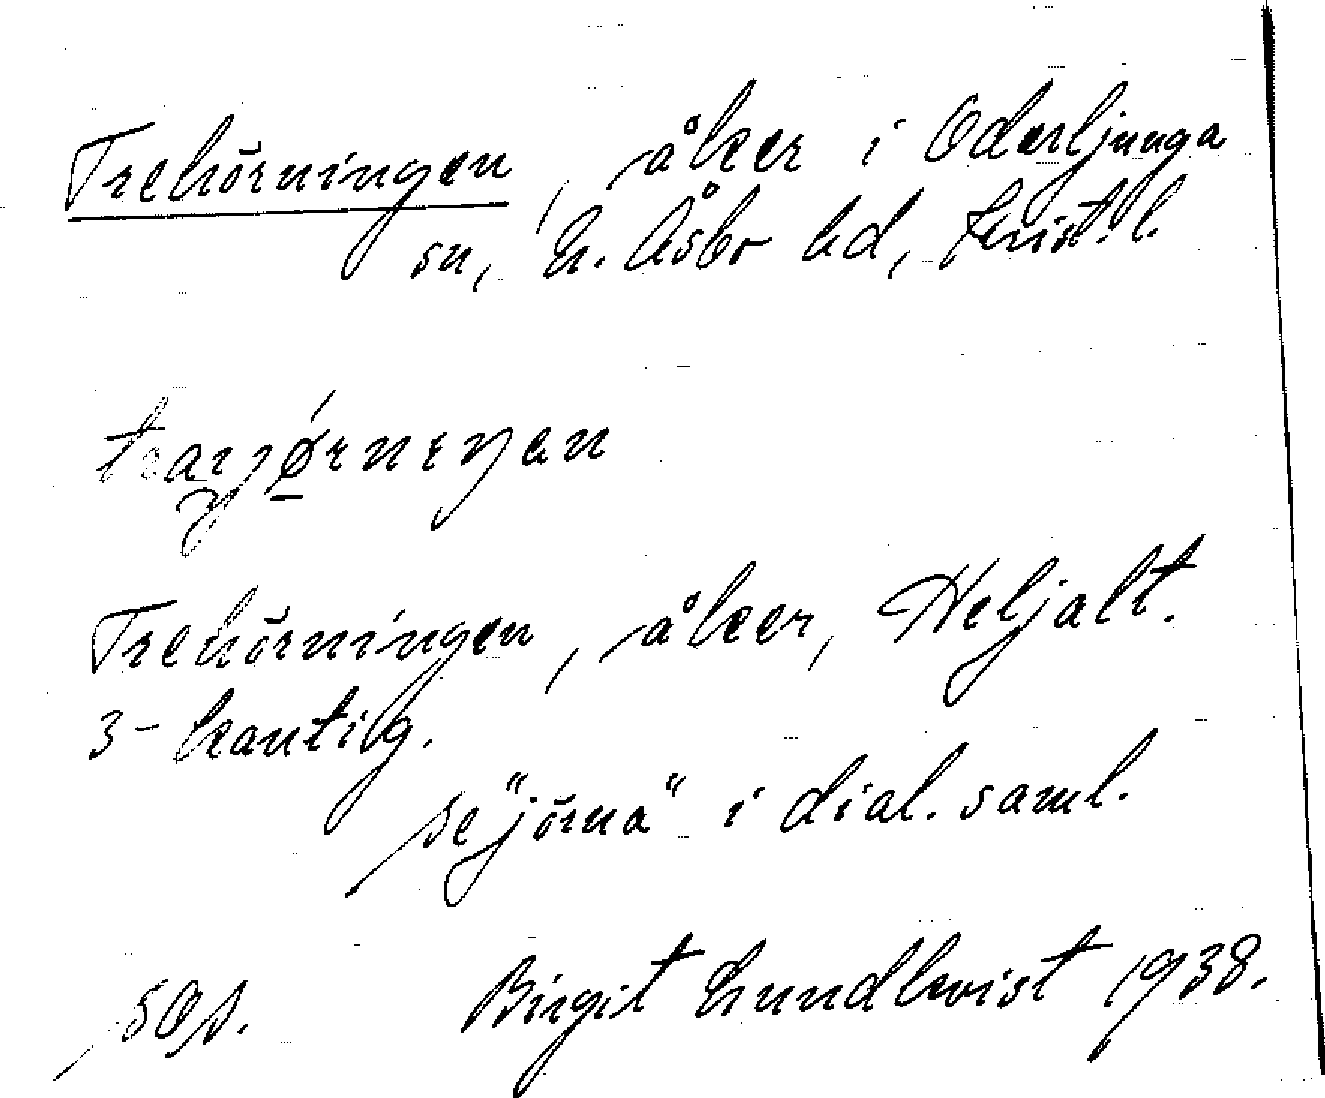 Trehörningen, åker i Oderljunga
sn, N. Åsbo hd, Krist. l.
Trehörningen, åker, Heljalt.
3-kantig.
se "jörna" i dial. saml.
Birgit Lundkvist 1938.